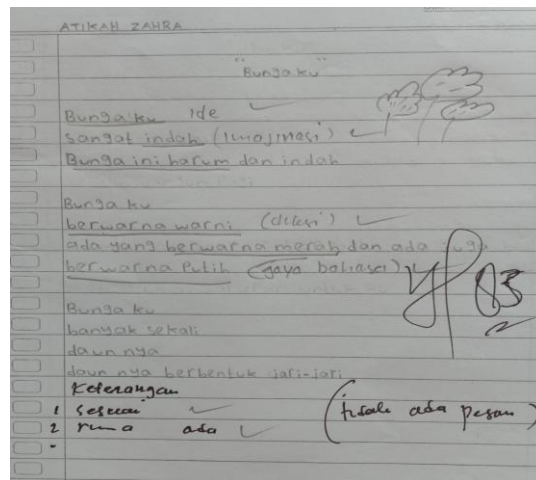 ATIKAH ZAHRA
"Bunga ku"
Bunga ku Ide
sangat indah (imajinasi)
Bunga ini harum dan indah
Bunga ku
berwarna warni (diksi)
ada yang berwarna merah dan ada juga
berwarna Putih (gaya bahasa)
Bunga ku
banyak sekali
daun nya
daun nya berbentuk jari-jari
Keterangan
1 sesuai
2 rima ada
(tidak ada pesan)